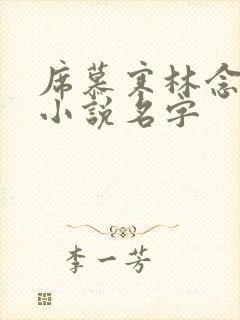 席慕寒林念
小說名字
李一芳